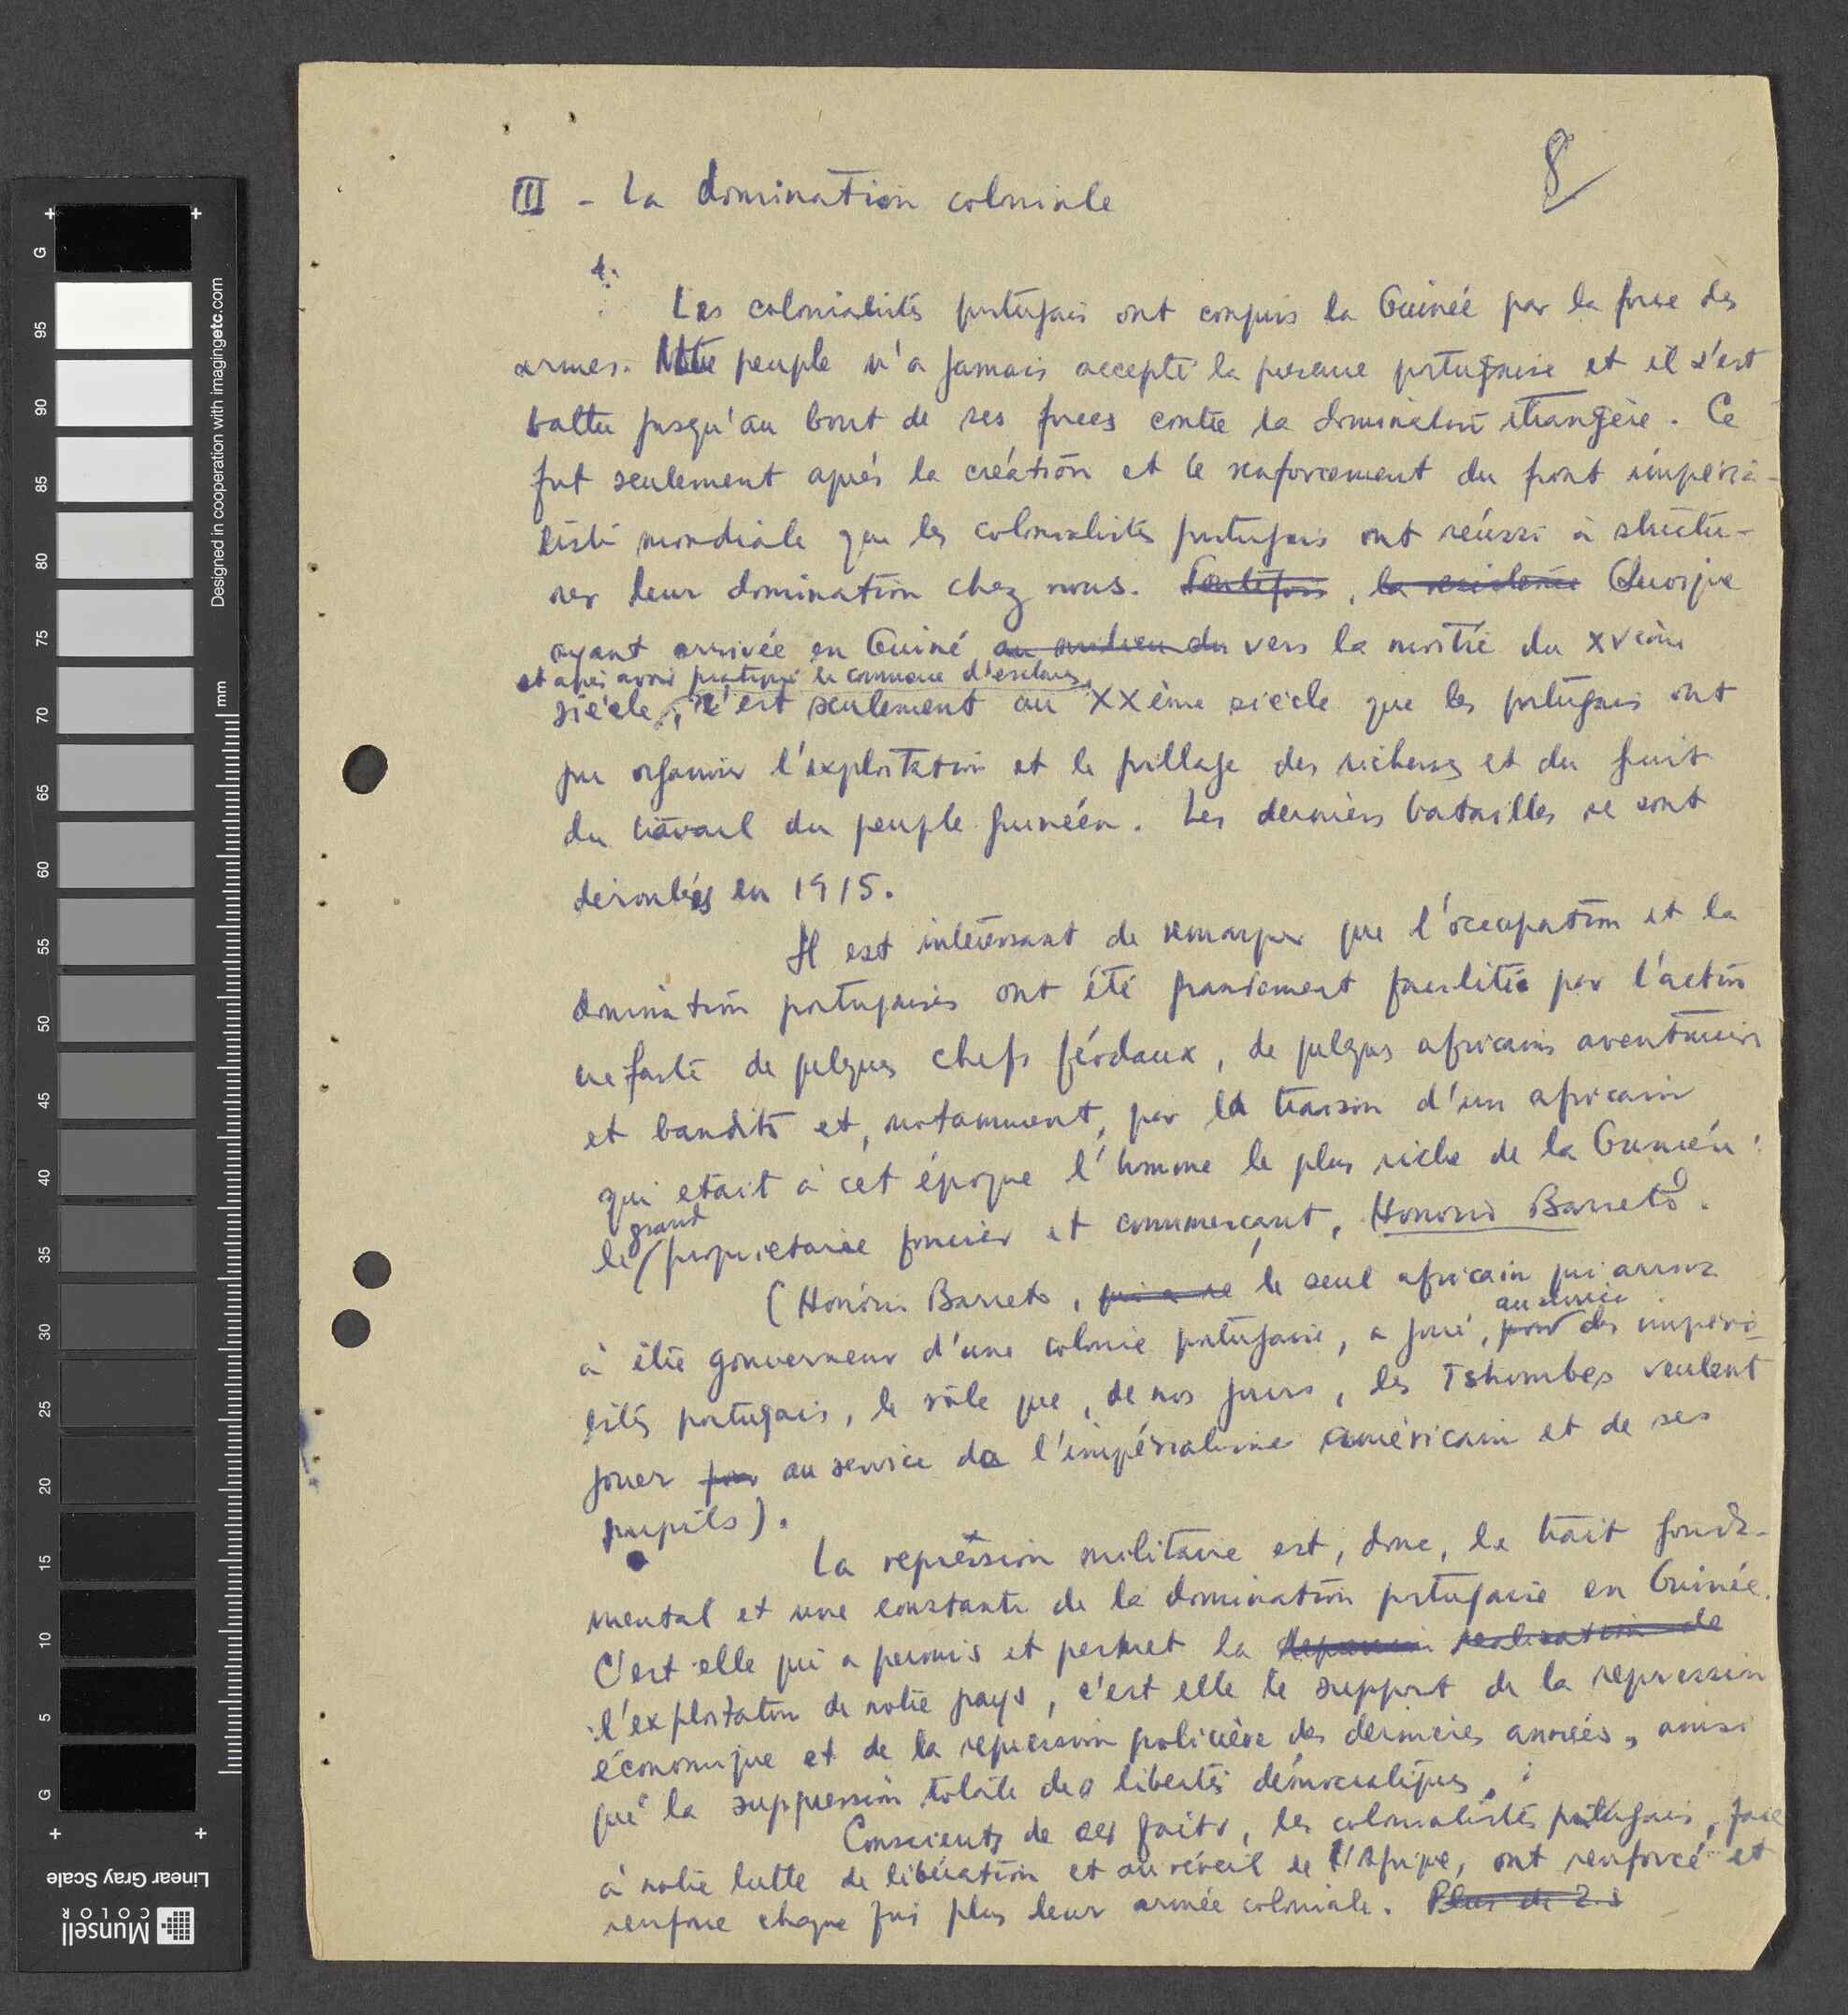 8
III - La domination coloniale
1.
Les colonialistes portugais ont conquis la Guinée par la force des
armes. Notre peuple n'a jamais accepté la presence portugaise et il s'est
battu jusqu'au bout de ses forces contre la domination étrangère. Ce
fut seulement aprés la création et le renforcement du front impéria-
liste mondiale que les colonialistes portugais ont réussi à structu-
rer leur domination chez nous. Toutefois, la résistence Quoique
ayant arrivée en Guiné au milieu du vers la moitié du XVème
et après avoir pratiqué le commerce d'esclaves,
siécle, c'est seulement au XXème siécle que les portugais ont
pu organiser l'exploitation et le pillage des richesses et du fruit
du travail du peuple guinéen. Les derniers batailles se sont
déroulées en 1915.
Il est intéressant de remarquer que l'occupation et la
domination portugaises ont été grandement facilités par l'action
nefaste de quelques chefs féodaux, de quelques africains aventuriers
et bandits et, notamment, par la traison d'un africain
qui etait à cet époque l'homme le plus riche de la Guinée:
grand
le propriétaire foncier et commerçant, Honorio Barreto.
(Honório Barreto, qui a été le seul africain qui arriva
au service
à être gouverneur d'une colonie portugaise, a joué, pour des impéria-
listes portugais, le rôle que, de nos jours, les Tshombes veulent
jouer pour au service de l'impérialisme américain et de ses
pupils).
La représsion militaire est, donc, le trait fonda-
mental et une constante de la domination portugaise en Guinée.
C'est elle qui a permis et permet la realisation de
l'exploitation de notre pays, c'est elle le support de la repression
économique et de la repression policière des dernières années, ainsi
que la suppression totale des libertés démocratiques.
Conscients de ces faits, les colonialistes portugais, face
à notre lutte de libération et au réveil de l'Afrique, ont renforcé et
renforce chaque jour plus leur armée coloniale. Plus de 2.
G
95
90
85
80
75
70
65
60
55
50
45
40
35
30
25
20
15
10
5
G
mm
Designed in cooperation with imagingetc.com
Linear Gray Scale
Munsell
COLOR